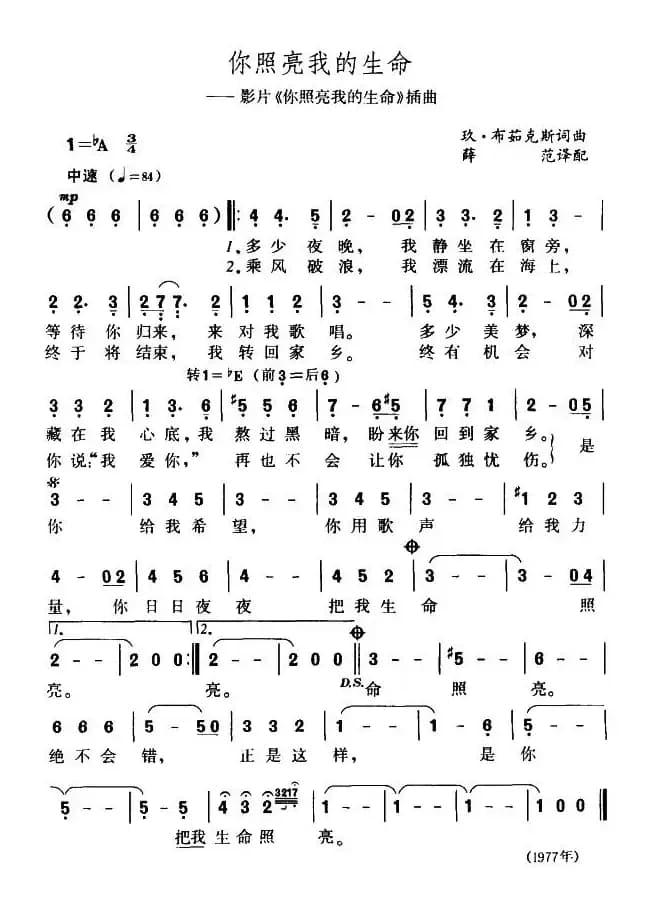 你照亮我的生命
—— 影片《你照亮我的生命》插曲
1=♭A 3/4
玖·布茹克斯词曲
中速（♩=84）
薛 范译配
mp
( 6 6 6 | 6 6 6 ) ‖: 4 4. 5 | 2 - 02 | 3 3. 2 | 3 - 05 |
1. 多少夜晚， 我 静坐在窗旁，
2. 乘风破浪， 我 漂流在海上，
2 2. 3 | 2 7 7. 7 | 1 1 2 | 3 - - | 5 4. 3 | 2 - 02 |
等待你 归来， 来 对我歌 唱。 多少美梦， 深
终于将 结束， 我 转回家 乡。 终有机会 对
转1=♭E（前3=后6）
3 3 2 | 1 3. 6 | #5 5 5 | 7 - 6#5 | 7 7 1 | 2 - 05 |
藏在我 心底，我 熬过黑 暗，盼来你 回到家 乡。 是
你说：“我 爱你，” 再也不 会 让你 孤独忧 伤。
3 - - | 3 4 5 | 3 - - | 3 4 5 | 3 - - | #1 2 3 |
你 给我希 望， 你用歌 声 给我力
4 - 02 | 4 5 6 | 6 - 5 | 4 5 2 | 3 - - | 3 - 04 |
量， 你 日日夜 夜 把我生 命 照
1. 2.
2 - - | 2 0 0 :‖ 2 - - | 2 0 0 ‖ 3 - - | #5 - - | 6 - - |
亮。 亮。 D.S. 命 照 亮。
6 6 6 | 5 - 50 | 6 2 3 | 1 - - | 1 - 6 | 5 - - |
绝不会 错， 正是这 样， 是 你
5 - - | 5 - 5 | 4 3 2 3217 | 1 - - | 1 - - | 1 0 0 ‖
把我 生命照 亮。
（1977年）